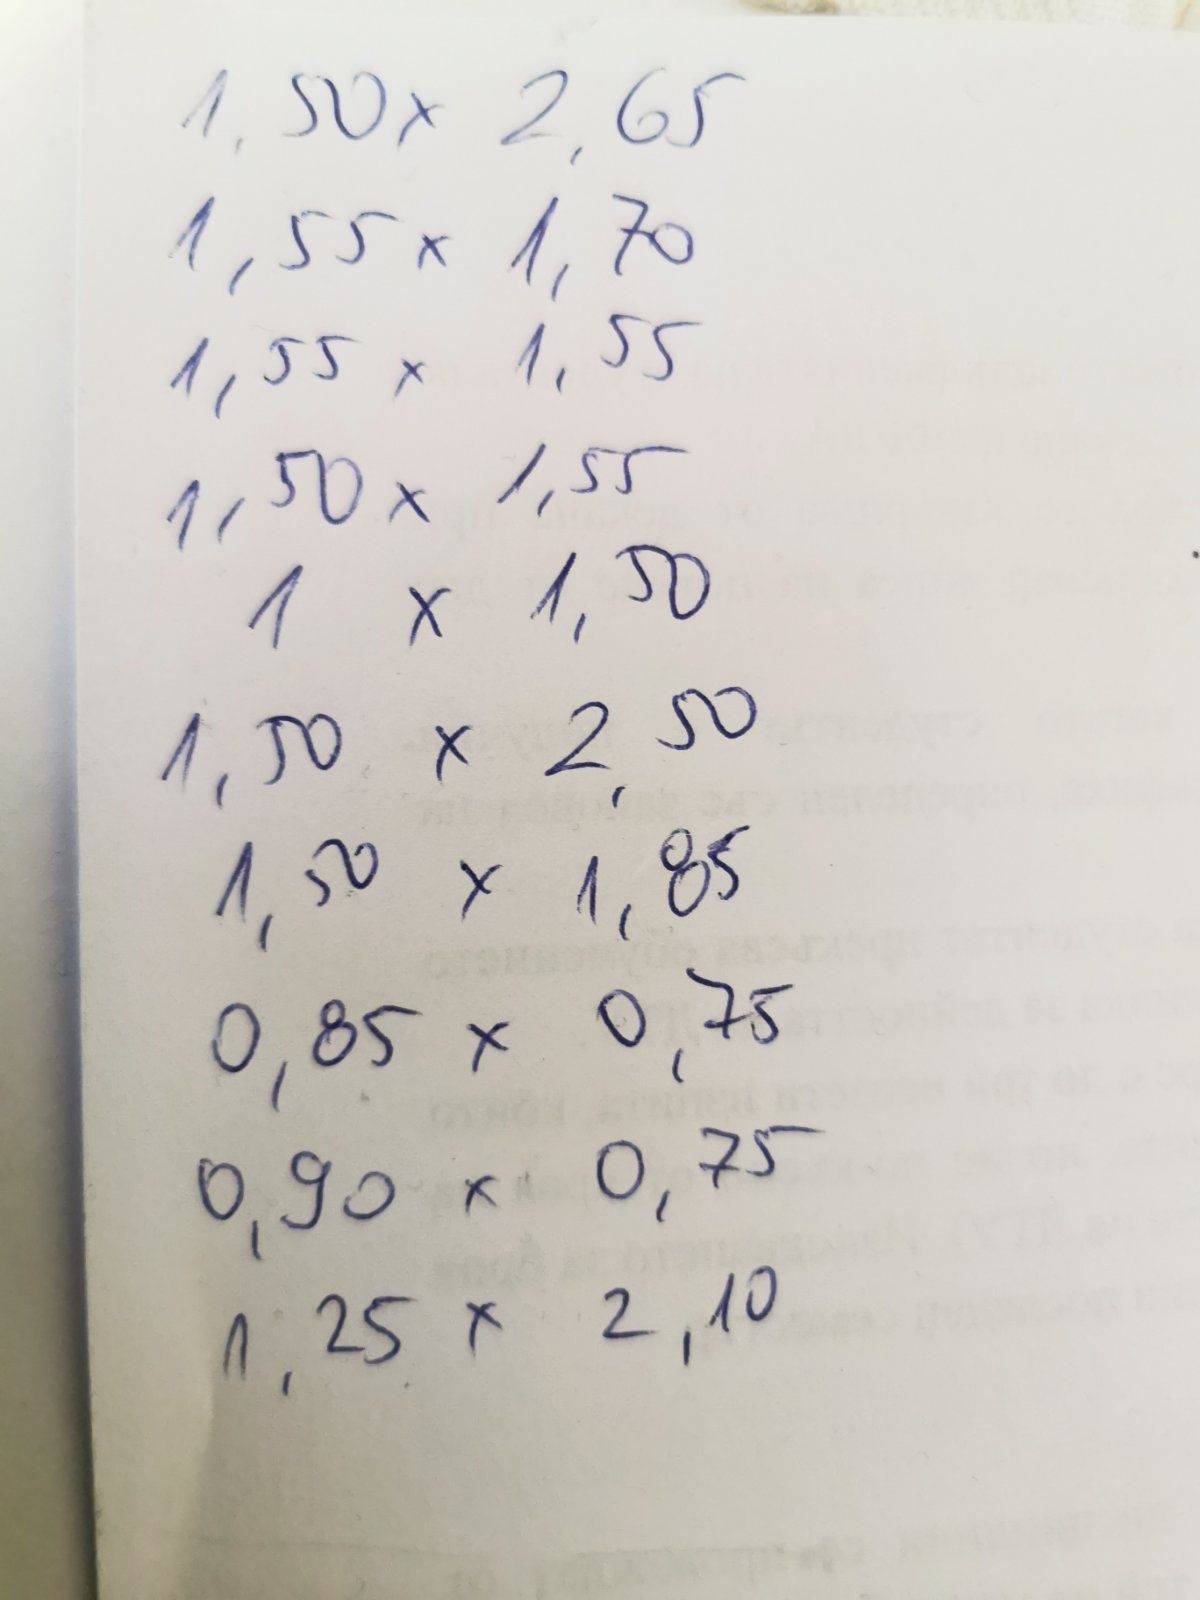 1,50 x 2,65
1,55 x 1,70
1,55 x 1,55
1,50 x 1,55
1 x 1,50
1,50 x 2,50
1,50 x 1,85
0,85 x 0,75
0,90 x 0,75
1,25 x 2,10